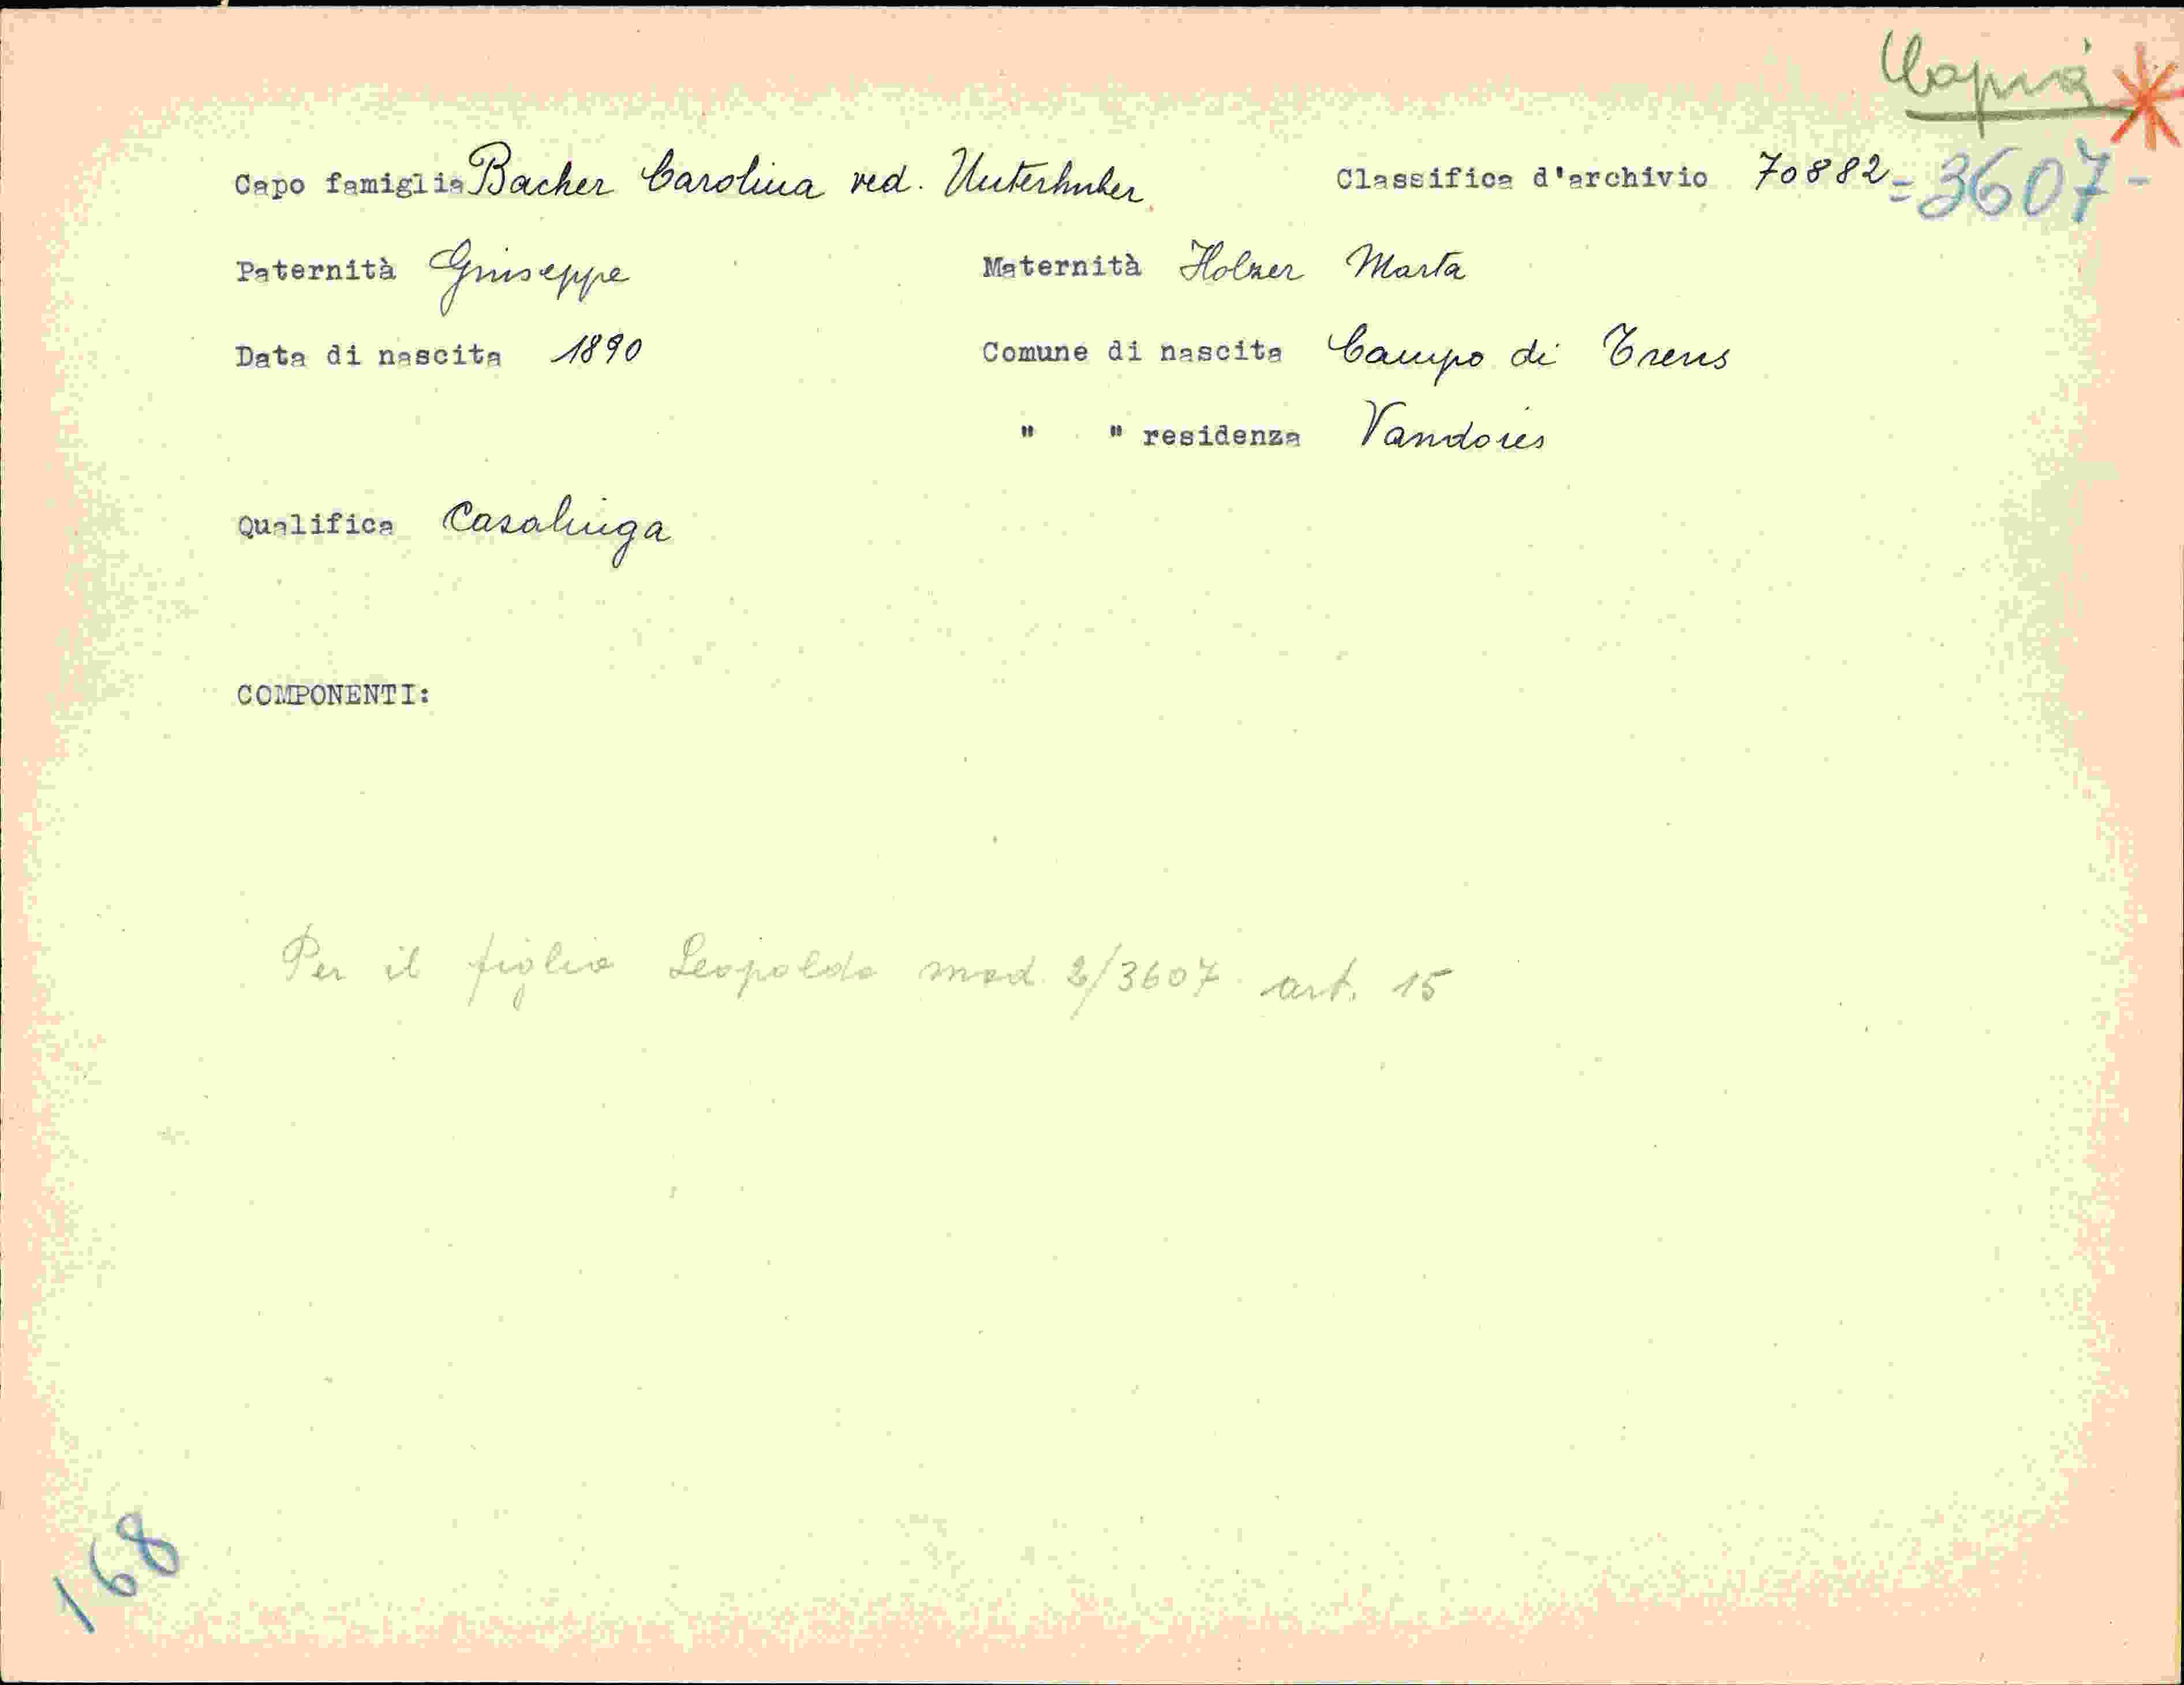 Copia
Capo famiglia Bacher Carolina ved. Unterhuber Classifica d'archivio 70882 = 3607 -
Paternità Giuseppe Maternità Holzer Marta
Data di nascita 1890 Comune di nascita Campo di Trens
" " residenza Vandoies
Qualifica Casalinga
COMPONENTI:
Per il figlio Leopoldo mod 2/3607 art. 15
168